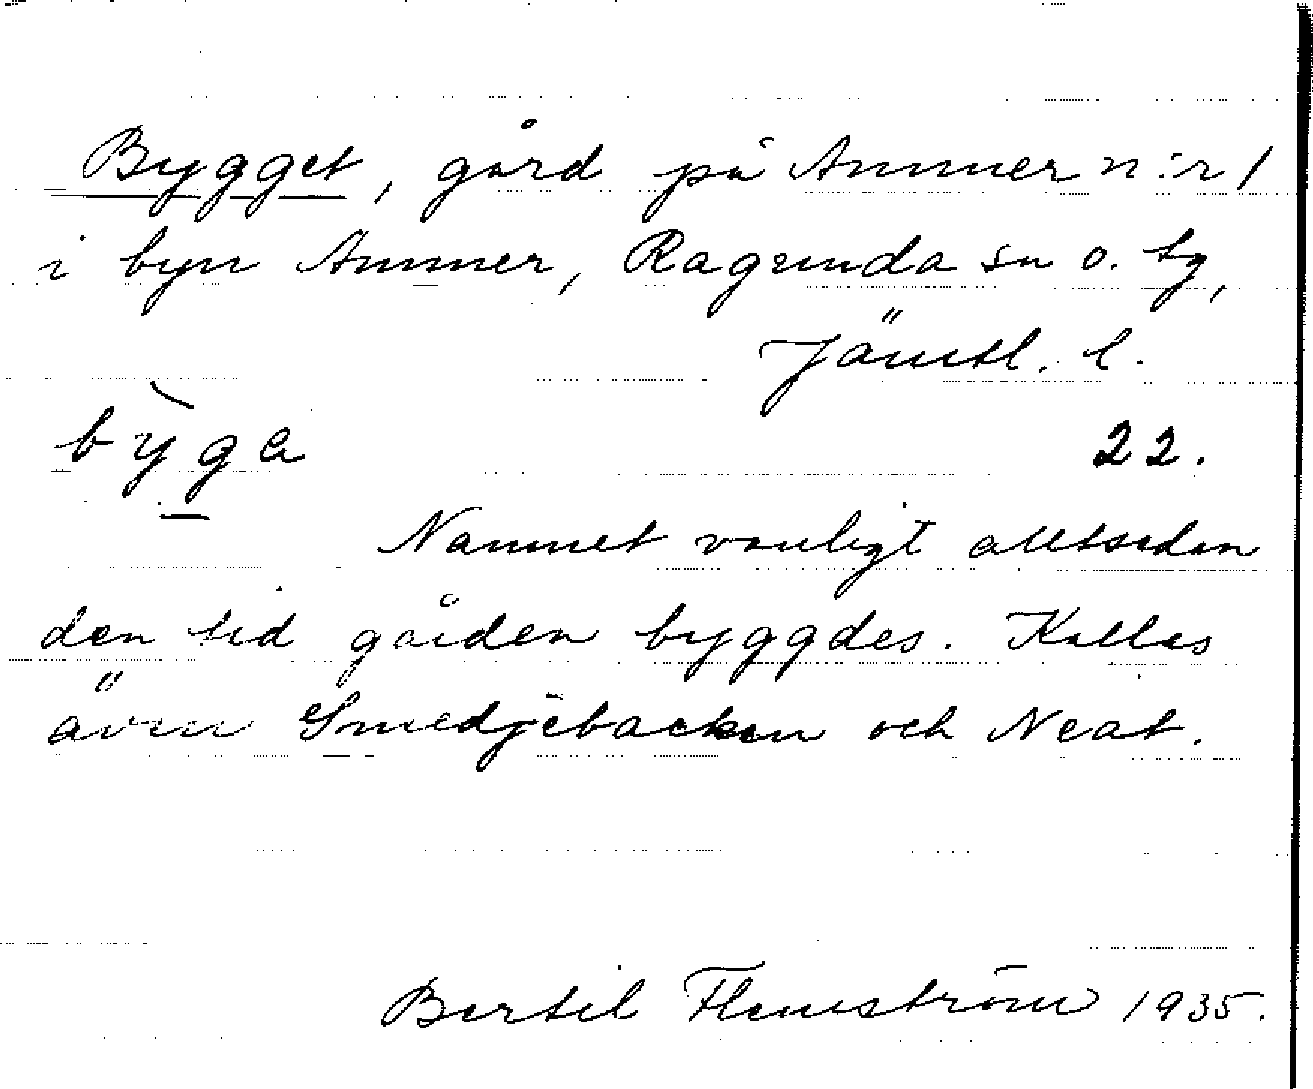 Bygget, gård på Ammer n:r 1
i byn Ammer, Ragunda sn o. tg,
Jämtl. l.
bỳga 22.
Namnet vanligt alltsedan
den tid gården byggdes. Kallas
även Smedjebacken och Neat.
Bertil Flemström 1935.